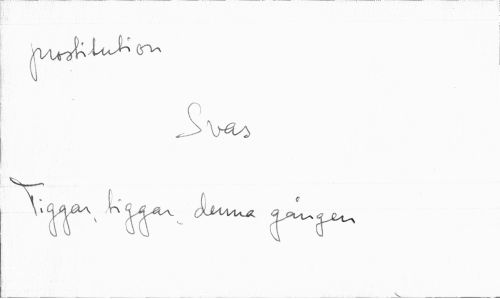 prostitution
Svas
Tiggar, tiggar, denna gången